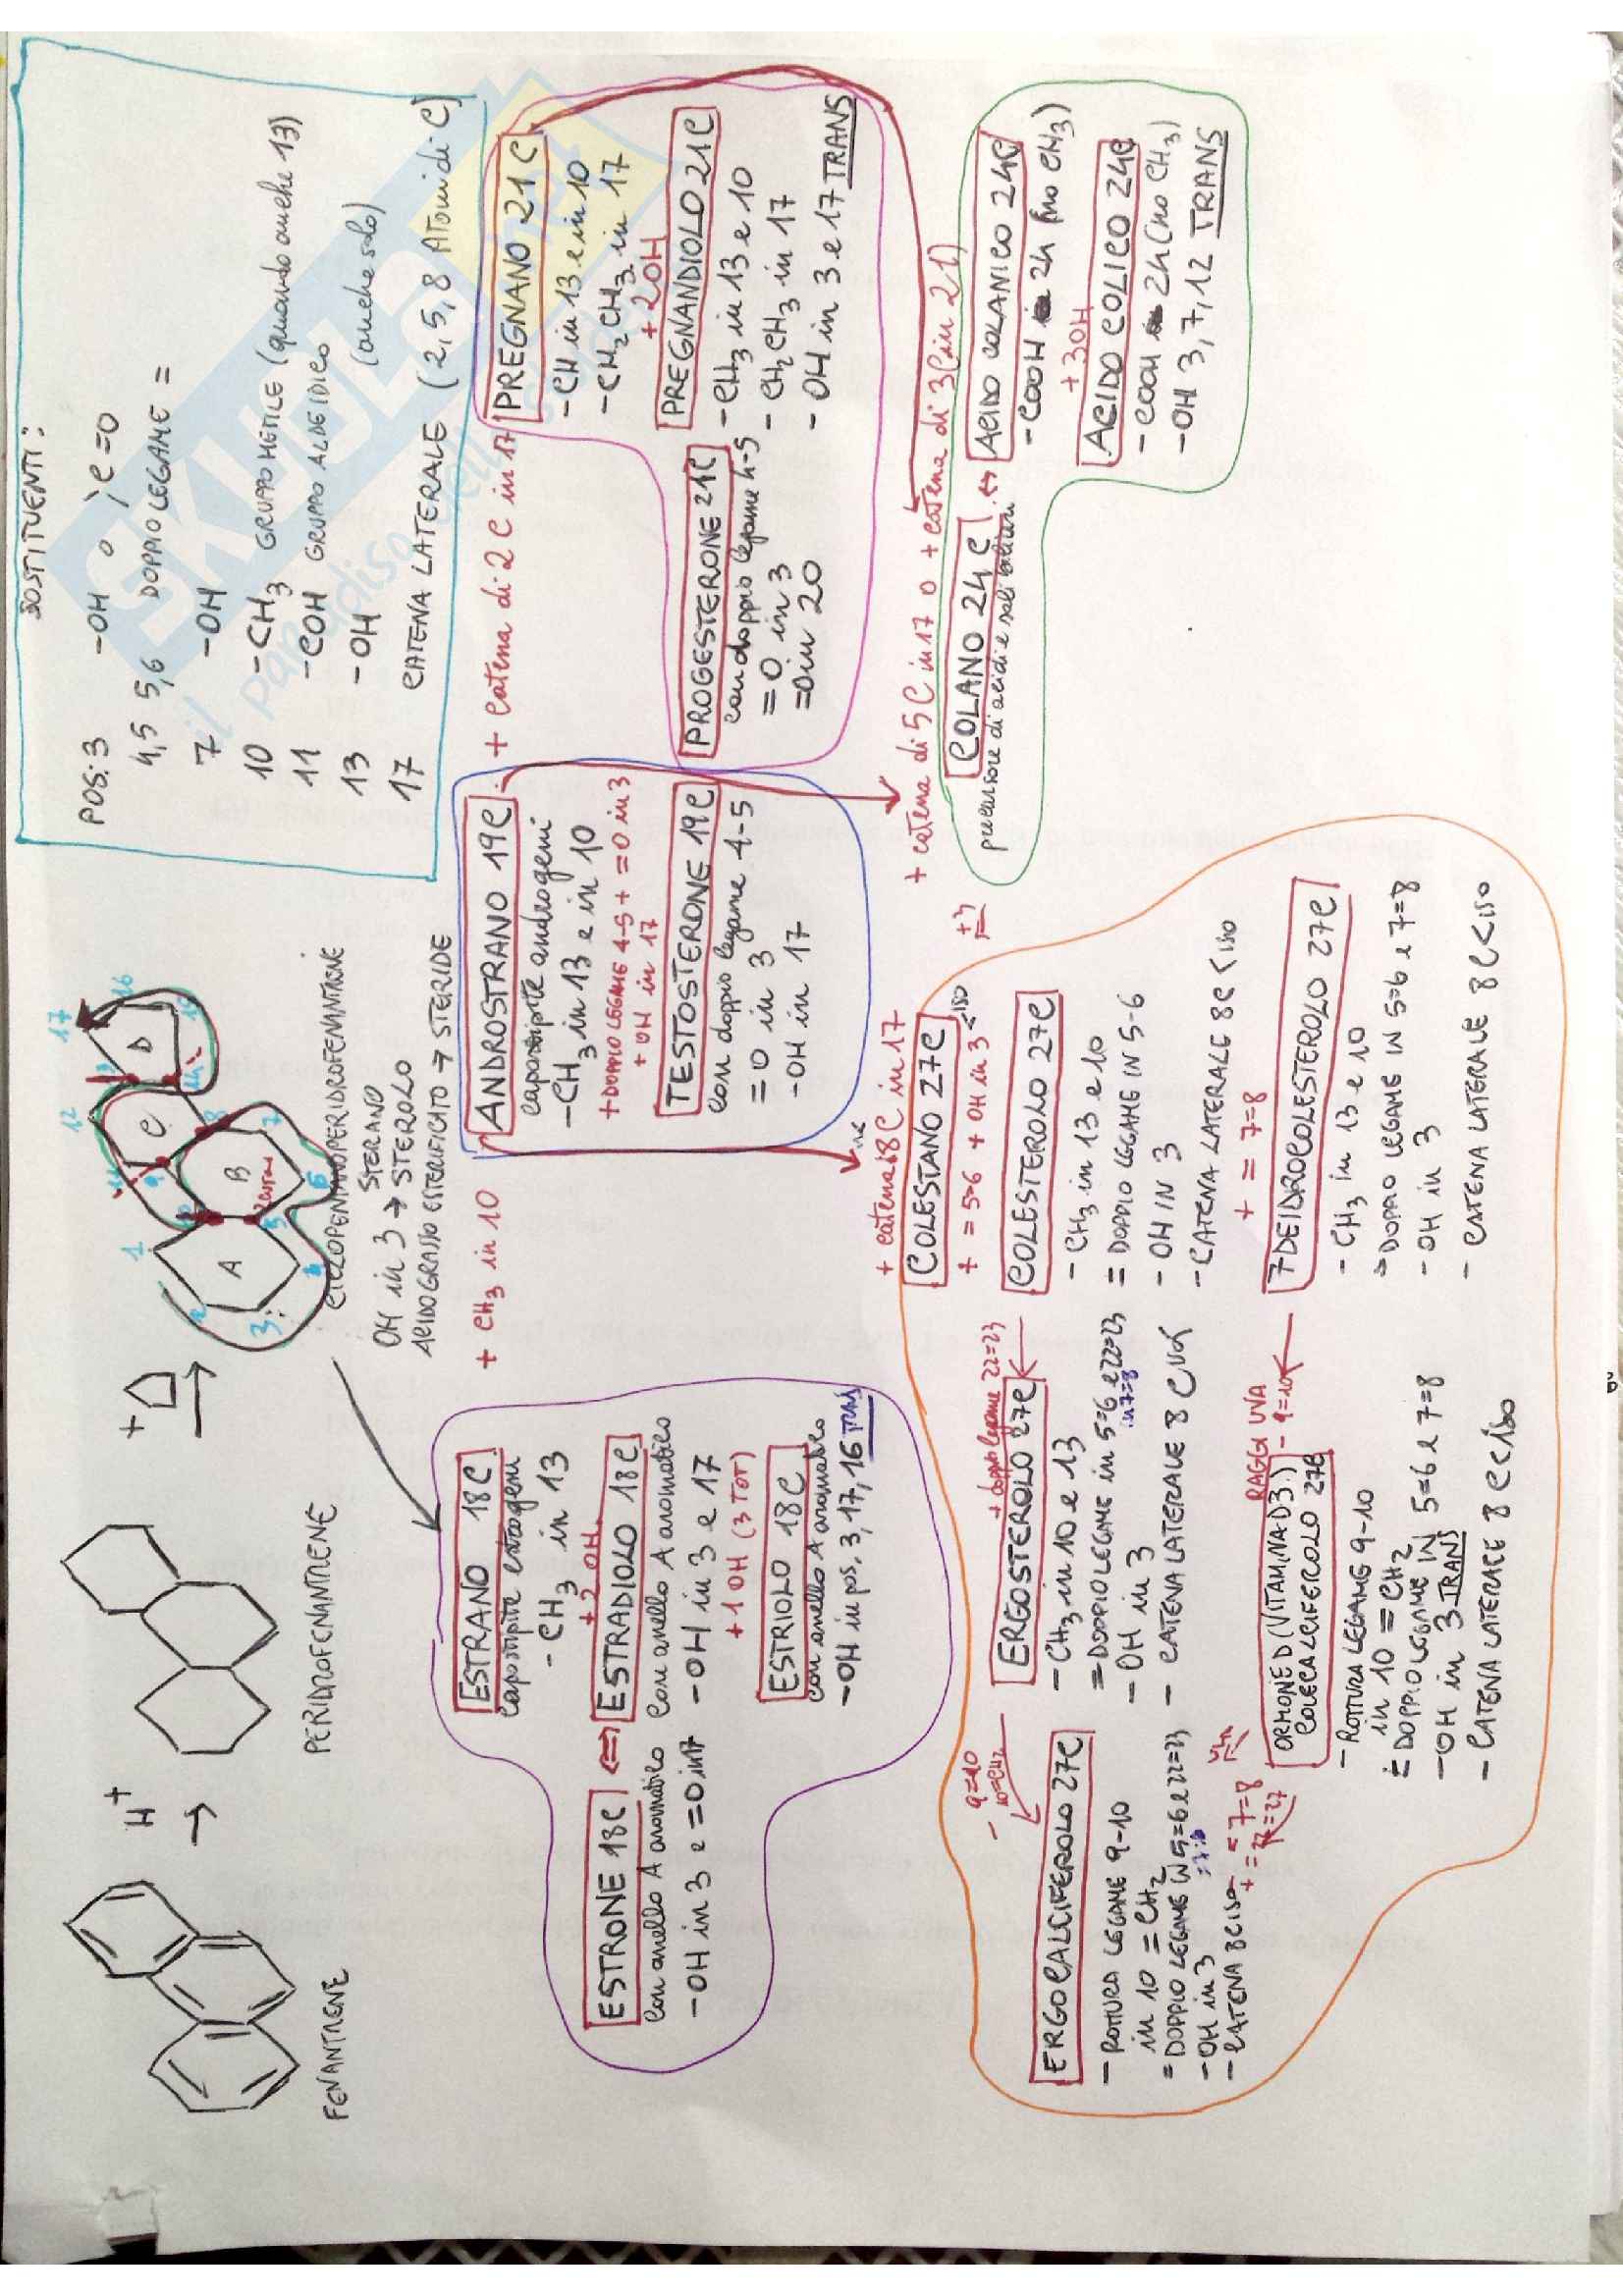 SOSTITUENTI:
POS: 3 -OH o =O
4,5 5,6 DOPPIO LEGAME =
7 -OH
10 -CH3 GRUPPO METILE (quando anche 13)
11 -COH GRUPPO ALDEIDICO
13 -OH (anche solo)
17 CATENA LATERALE (2,5,8 ATOMI di C)
SKUOLA
il paradiso dello
FENANTRENE
H+
→
PERIDROFENANTRENE
+
→
A
B
C
D
1
2
3
5
7
8
9
12
16
17
CICLOPENTANOPERIDROFENANTRENE
STERANO
OH in 3 → STEROLO
ACIDO GRASSO ESTERIFICATO → STERIDE
ESTRANO 18C
capostipite estrogeni
- CH3 in 13
+2 OH
ESTRONE 18C ⇔ ESTRADIOLO 18C
con anello A aromatico
-OH in 3 e =O in 17
con anello A aromatico
-OH in 3 e 17
+1 OH (3 TOT)
ESTRIOLO 18C
con anello A aromatico
-OH in pos. 3,17,16 TRANS
+ CH3 in 10
ANDROSTRANO 19C
capostipite androgeni
-CH3 in 13 e in 10
+DOPPIO LEGAME 4-5 + =O in 3
+ OH in 17
TESTOSTERONE 19C
con doppio legame 4-5
=O in 3
-OH in 17
+ catena di 2 C in 17
PREGNANO 21 C
-CH in 13 e in 10
-CH2CH3 in 17
+ 2OH
PREGNANDIOLO 21C
-CH3 in 13 e 10
- CH2CH3 in 17
- OH in 3 e 17 TRANS
PROGESTERONE 21C
con doppio legame 4-5
=O in 3
=O in 20
+ catena di 5C in 17 o + catena di 3C in 21)
COLANO 24 C ↔ ACIDO COLANICO 24C
precursore di acidi e sali biliari
-COOH in 24 (no CH3)
+3OH
ACIDO COLICO 24C
-COOH in 24 (no CH3)
-OH 3,7,12 TRANS
+ catena 8C in 17
COLESTANO 27C
+ = 5=6 + OH in 3
COLESTEROLO 27C
- CH3 in 13 e 10
= DOPPIO LEGAME IN 5-6
- OH IN 3
-CATENA LATERALE 8C
+ = 7=8
7DEIDROCOLESTEROLO 27C
- CH3 in 13 e 10
=DOPPIO LEGAME IN 5=6 e 7=8
- OH in 3
- CATENA LATERALE 8C
+ doppio legame 22=23
ERGOSTEROLO 27C
- CH3 in 10 e 13
=DOPPIO LEGAME in 5=6 e 22=23
in 7=8
- OH in 3
- CATENA LATERALE 8 C
RAGGI UVA
- 9=10
ORMONE D (VITAMINA D3)
COLECALCIFEROLO 27C
-ROTTURA LEGAME 9-10
in 10 =CH2
= DOPPIO LEGAME IN 5=6 e 7=8
-OH in 3 TRANS
- CATENA LATERALE 8C
- 9=10
10=CH2
ERGOCALCIFEROLO 27C
- ROTTURA LEGAME 9-10
in 10 =CH2
=DOPPIO LEGAME IN 5=6 e 22=23
-OH in 3
-CATENA 8C
+ = 7=8